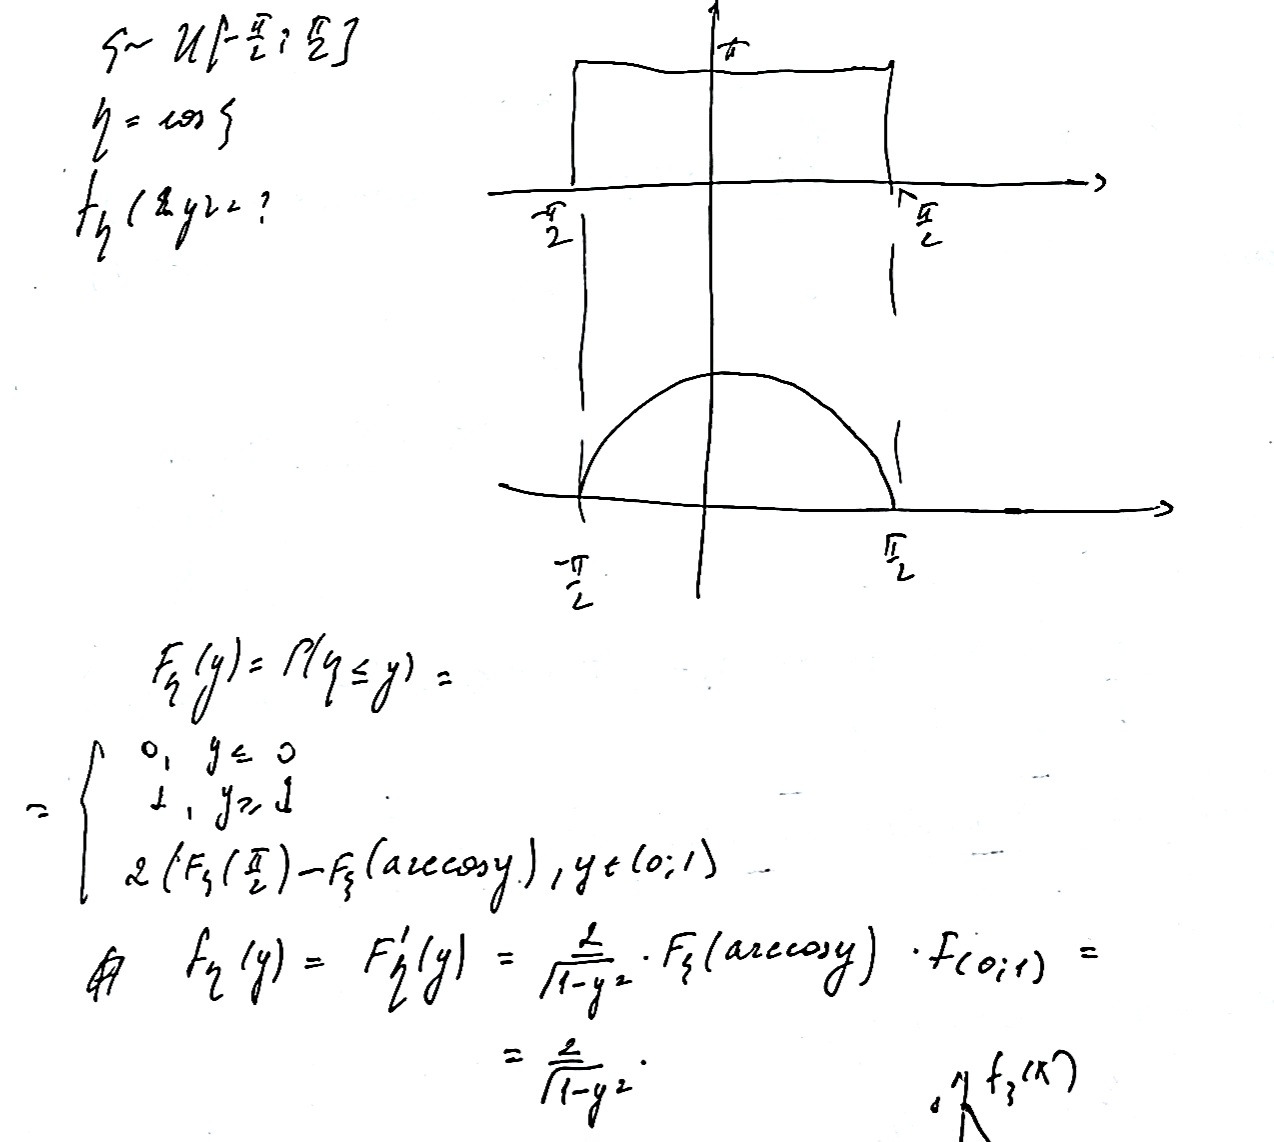 ξ ~ U[-π/2; π/2]
η = cos ξ
f_η(y) = ?
π
-π/2
π/2
-π/2
π/2
F_η(y) = P(η ≤ y) =
= { 0, y ≤ 0
1, y ≥ 1
2(F_ξ(π/2) - F_ξ(arccosy), y ∈ (0;1)
f_η(y) = F'_η(y) = 2/√1-y² · F_ξ(arccosy) · F(0;1) =
= 2/√1-y² ·
f_ξ(x)